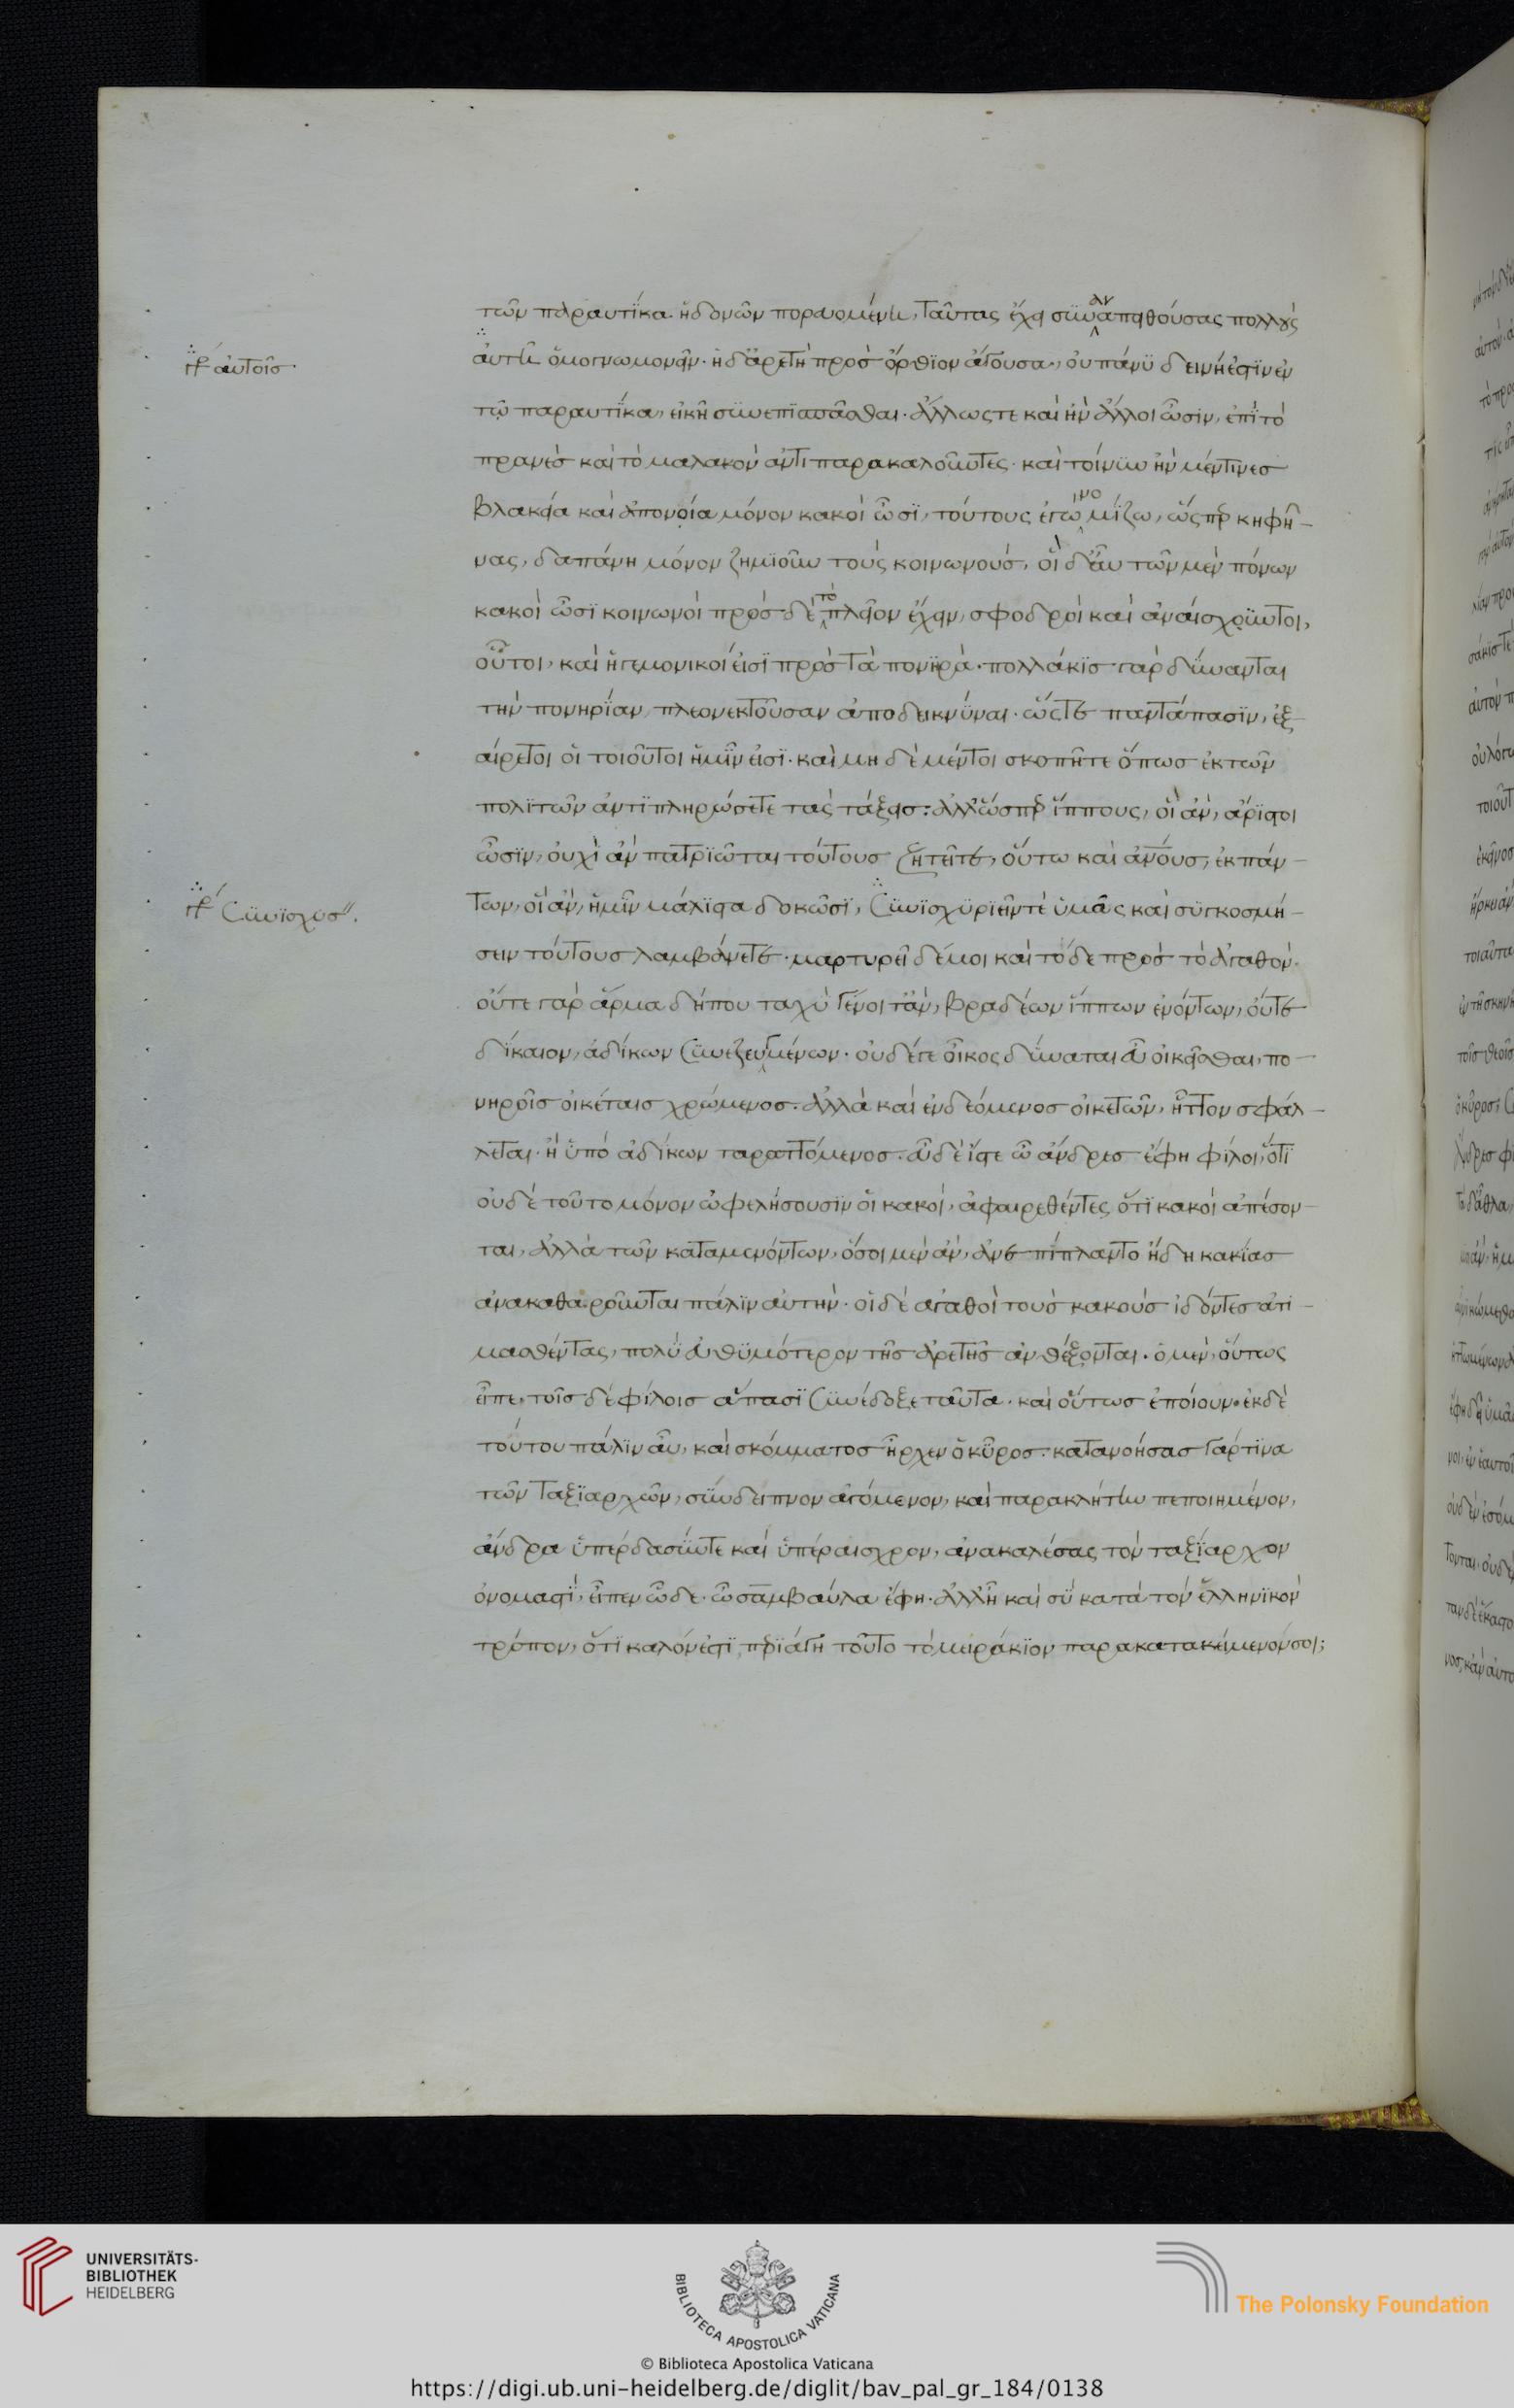 τῶν παραυτΐκα ἡδονῶν πορευομένη, ταύτας ἔχει συναναπειθούσας πολλοὺς
γρ αὐτοῖς
αὐτῆ ὁμογνωμονεῖν· ἡ δ' ἀρετὴ πρὸς ὄρθϊον ἄγουσα, οὐ πάνϋ δεινή ἐστϊν ἐν
τῶ παραυτΐκα, εἰκῆ συνεπϊσπᾶσθαι· ἄλλως τε καὶ ἢν ἄλλοι ὦσιν, ἐπῒ τὸ
πρανὲς καὶ τὸ μαλακὸν ἀντιπαρακαλοῦντες· καὶ τοίνυν ἢν μέν τινες
βλακεία καὶ ἀπονοία μόνον κακοὶ ὦσϊ, τούτους ἐγὼ νομίζω, ὥσπερ κηφῆ-
νας, δαπάνη μόνον ζημϊοῦν τοὺς κοινωνούς, οἳ δ' ἂν τῶν μὲν πόνων
κακοὶ ὦσϊ κοινωνοὶ πρὸς δὲ τὸ πλεῖον ἔχειν, σφοδροὶ καὶ ἀναίσχϋντοι,
οὗτοι, καὶ ἡγεμονικοί εἰσϊ πρὸς τὰ πονηρά· πολλάκϊς γὰρ δύνανται
τὴν πονηρΐαν πλεονεκτοῦσαν ἀποδεικνΰναι· ὥστε παντάπασϊν, ἐξ-
αίρετοι οἱ τοιοῦτοι ἡμῖν εἰσΐ· καὶ μὴ δὲ μέντοι σκοπῆτε ὅπως ἐκ τῶν
πολϊτῶν ἀντϊπληρώσετε τὰς τάξεις: ἀλλ' ὥσπερ ἵππους, οἳ ἂν, ἄρϊστοι
ὦσϊν, οὐχὶ ἂν πατρϊῶται τούτους ζητεῖτε, οὕτω καὶ ἀνους, ἐκ πάν-
γρ συνϊσχυσ
των, οἳ ἂν, ἡμῖν μάλϊστα δοκῶσϊ, συνϊσχϋριεῖν τὲ ὑμᾶς καὶ συγκοσμή-
σειν τούτους λαμβάνετε· μαρτυρεῖ δέ μοι καὶ τόδε πρὸς τὸ ἀγαθόν.
οὔτε γὰρ ἅρμα δήπου ταχὺ γένοιτ' ἂν, βραδέων ἵππων ἐνόντων, οὔτε
δίκαιον, ἀδίκων συνεζευγμένων· οὐδέ γε οἶκος δύναται εὖ οἰκεῖσθαι, πο-
νηροῖς οἰκέταις χρώμενος· ἀλλὰ καὶ ἐνδεόμενος οἰκετῶν, ἧττον σφάλ-
λεται· ἢ ὑπὸ ἀδίκων ταραττόμενος· εὖ δὲ ἴστε ὦ ἄνδρες ἔφη φίλοι, ὅτϊ
οὐδὲ τοῦτο μόνον ὠφελήσουσϊν οἱ κακοὶ, ἀφαιρεθέντες ὅτϊ κακοὶ ἀπέσον-
ται, ἀλλὰ τῶν καταμενόντων, ὅσοι μὲν ἂν, ἀνεπίπλαντο ἤδη κακίας
ἀνακαθαροῦνται πάλϊν αὐτήν· οἱ δὲ ἀγαθοὶ τοὺς κακοὺς ἰδόντες ἀτι-
μασθέντας, πολὺ εὐθϋμότερον τῆς ἀρετῆς ἀνθέξονται· ὁ μὲν, οὕτως
εἶπε, τοῖς δὲ φίλοις ἅπασϊ συνέδοξε ταῦτα· καὶ οὕτως ἐποίουν· ἐκ δὲ
τούτου πάλϊν αὖ, καὶ σκόμματος ἦρχεν ὁ κῦρος· κατανοήσας γάρ τϊνα
τῶν ταξϊαρχῶν, σύνδειπνον ἀγόμενον, καὶ παρακλήτην πεποιημένον,
ἄνδρα ὑπέρδασΰν τε καὶ ὑπέραισχρον, ἀνακαλέσας τὸν ταξΐαρχον
ὀνομαστΐ, εἶπεν ὧδε· ὦ σαμβαύλα ἔφη· ἀλλ' ἦ καὶ σὺ κατὰ τὸν ἑλληνϊκὸν
τρόπον, ὅτϊ καλόν ἐστϊ, περϊάγη τοῦτο τὸ μειράκϊον παρακατακείμενόν σοι;
UNIVERSITÄTS-
BIBLIOTHEK
HEIDELBERG
BIBLIOTECA APOSTOLICA VATICANA
The Polonsky Foundation
© Biblioteca Apostolica Vaticana
https://digi.ub.uni-heidelberg.de/diglit/bav_pal_gr_184/0138